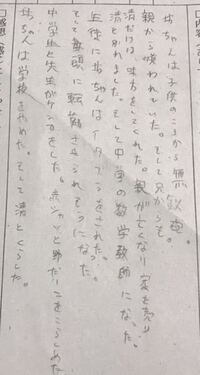 坊ちゃんは子供のころから無鉄砲。
親から嫌われていた。そして兄からも。
清だけは味方をしてくれた。親が亡くなり家を売り
清と別れました。そして中学の数学教師になった。
生徒に坊ちゃんはイタズラをされた。
そして延岡に転勤させられそうになった。
中学生と先生がケンカをした。赤シャツと野だいこをこらしめた
坊ちゃんは学校をやめた。そして清とくらした。